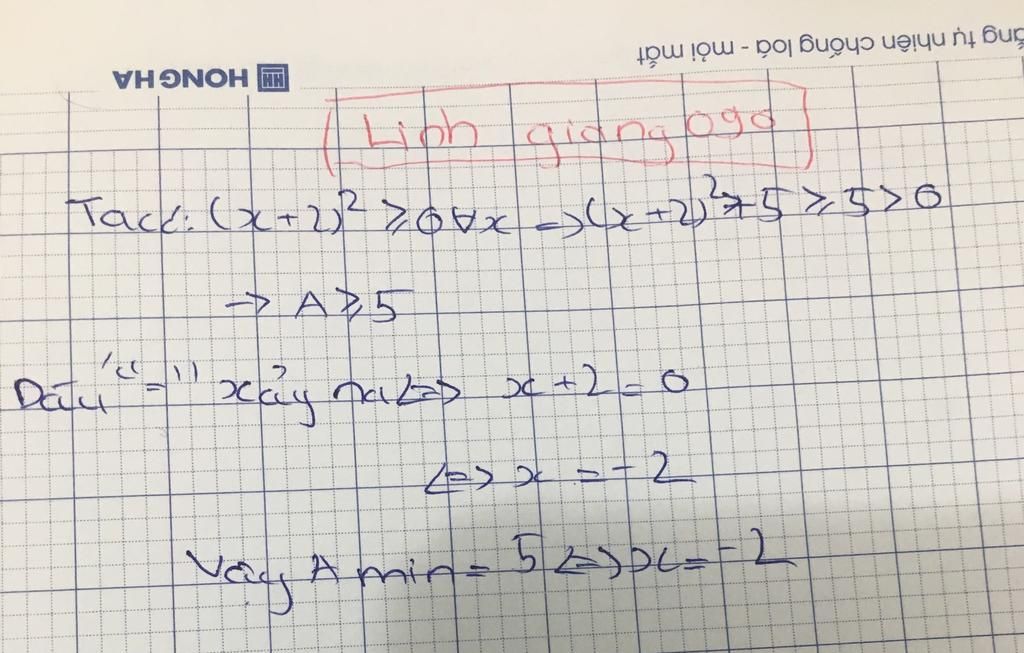 ống tự nhiên chống loá - mỏi mắt
HONG HA
Linh giang 090
Ta có: (x+2)² ≥ 0 ∀x => (x+2)² + 5 ≥ 5 > 0
-> A ≥ 5
Dấu "=" xảy ra <=> x + 2 = 0
<=> x = -2
Vậy A min = 5 <=> x = -2